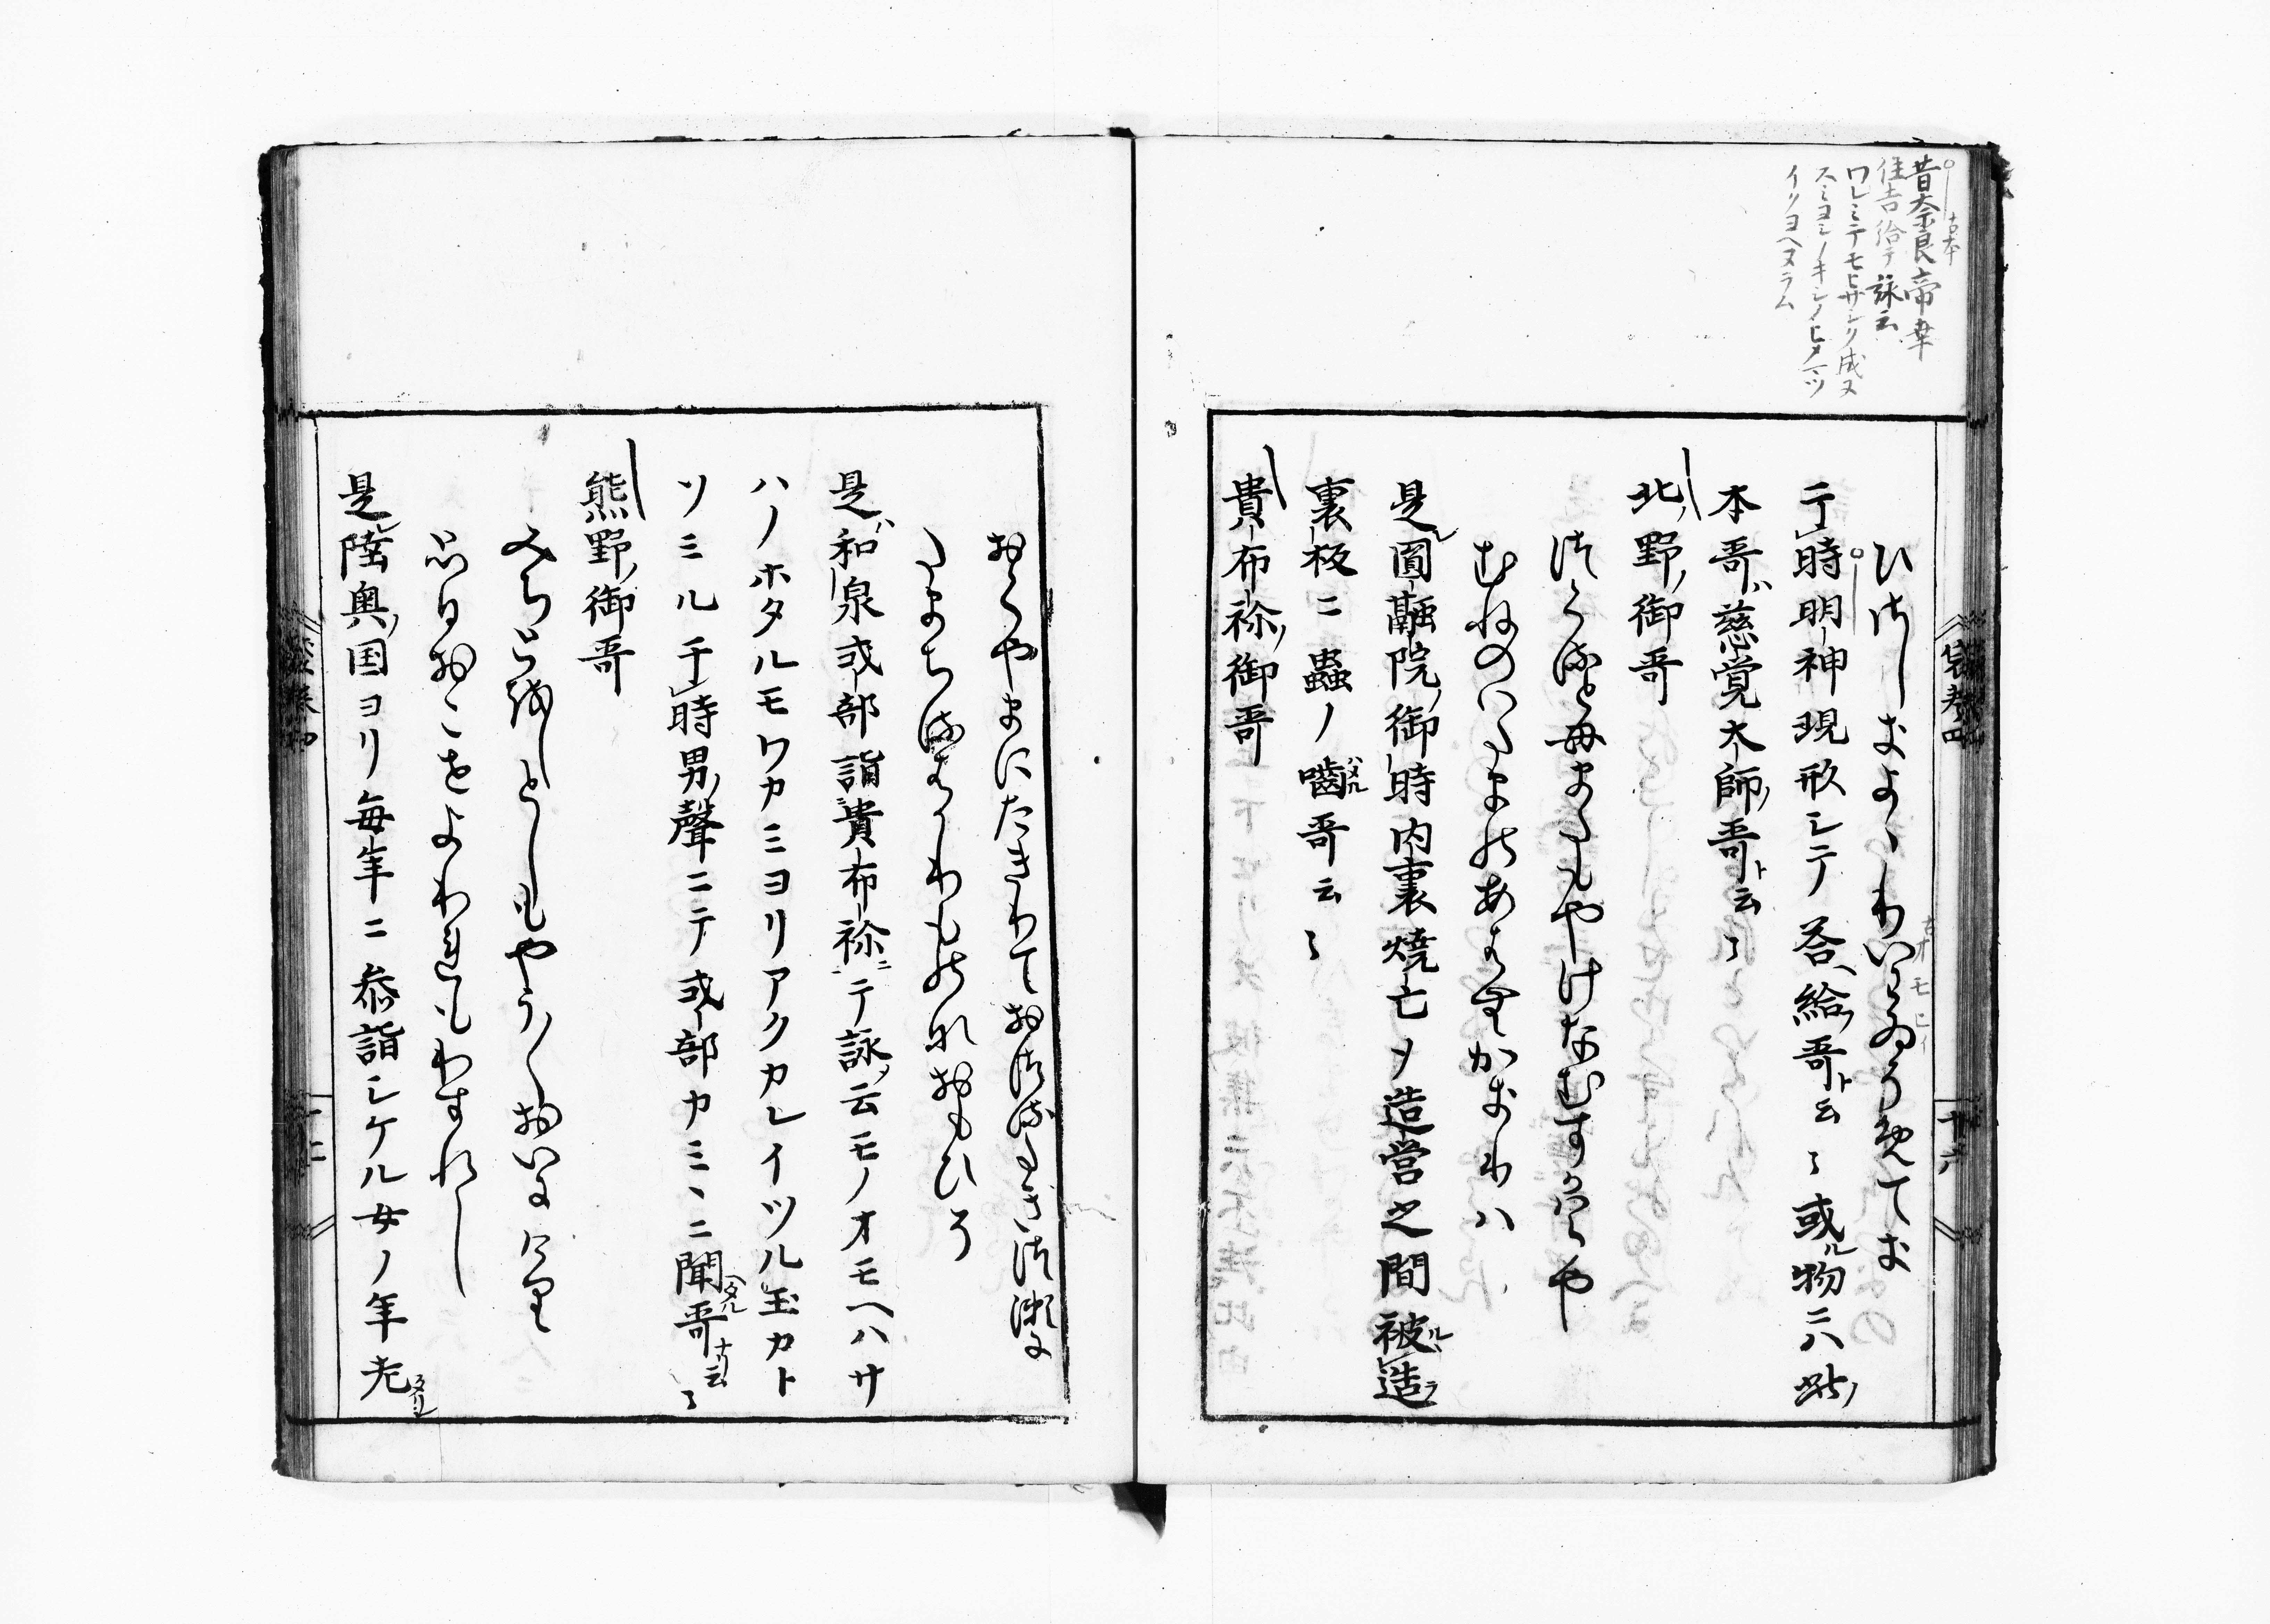 古本
昔奈良帝幸
住吉給テ詠云
ワレミテモヒサシク成ヌ
スミヨシノキシノヒメマツ
イクヨヘヌラム
ひさしきよゝりいはゐそめてき
古本 オモヒイ
于時明神現形シテ答給哥ト云々或ル物ニハ此ノ
本哥ハ慈覚大師ノ哥ト云々
北野ノ御哥
つくるとも又もやけなむすかはらや
むねのいたまのあはむかきりは
是レ圓融院ノ御時内裏焼亡ノ造営之間被ルレ造ラ
裏板ニ蟲ノ嚙ハメル哥云々
貴布祢ノ御哥
袋草紙四
廿六
おくやまにたきりておつるたきつ瀬に
たまちるはかりものなおもひそ
是ハ和泉式部詣貴布祢ニテ詠ノ云モノオモヘハサ
ハノホタルモワカミヨリアクカレイツル玉カト
ソミル于時男ノ聲ニテ式部カミヽニ聞ヘタル哥ナリ云々
熊野ノ御哥
みちとほしとしもやう〱おいにけり
思ひおこせよわれもわすれし
是レ陸奥ノ国ヨリ毎年ニ参詣シケルサノ年老